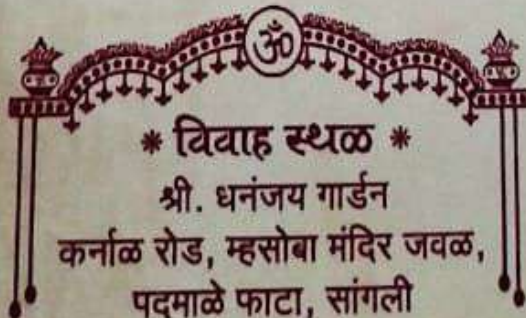 ॐ
* विवाह स्थळ *
श्री. धनंजय गार्डन
कर्नाळ रोड, म्हसोबा मंदिर जवळ,
पदमाळे फाटा, सांगली